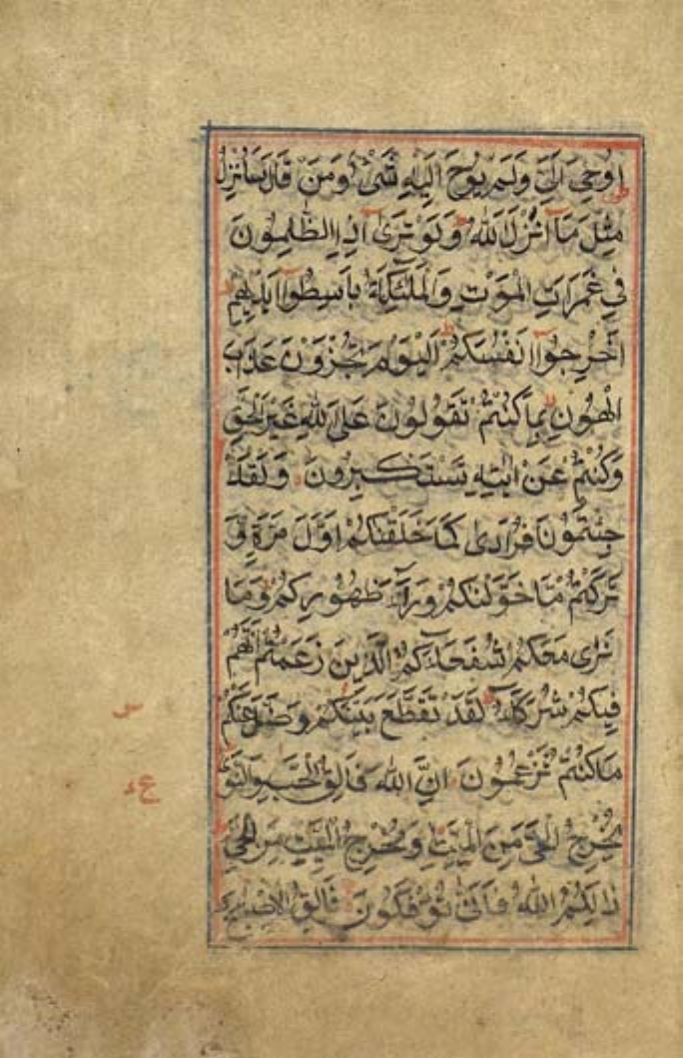 اُوْحِيَ اِلَيَّ وَلَمْ يُوْحَ اِلَيْهِ شَیْءٌ وَمَنْ قَالَ سَاُنْزِلُ
مِثْلَ مَآ اَنْزَلَ اللّٰهُ وَلَوْ تَرٰۤی اِذِ الظّٰلِمُوْنَ
فِيْ غَمَرَاتِ الْمَوْتِ وَالْمَلٰٓئِكَةُ بَاسِطُوْٓا اَيْدِيْهِمْ
اَخْرِجُوْٓا اَنْفُسَكُمْ اَلْيَوْمَ تُجْزَوْنَ عَذَابَ
الْهُوْنِ بِمَا كُنْتُمْ تَقُوْلُوْنَ عَلَی اللّٰهِ غَيْرَ الْحَقِّ
وَكُنْتُمْ عَنْ اٰيٰتِهٖ تَسْتَكْبِرُوْنَ وَلَقَدْ
جِئْتُمُوْنَا فُرَادٰی كَمَا خَلَقْنٰكُمْ اَوَّلَ مَرَّةٍ وَّ
تَرَكْتُمْ مَّا خَوَّلْنٰكُمْ وَرَآءَ ظُهُوْرِكُمْ وَمَا
نَرٰی مَعَكُمْ شُفَعَآءَكُمُ الَّذِيْنَ زَعَمْتُمْ اَنَّهُمْ
فِيْكُمْ شُرَكٰٓؤُا لَقَدْ تَقَطَّعَ بَيْنَكُمْ وَضَلَّ عَنْكُمْ
مَا كُنْتُمْ تَزْعُمُوْنَ اِنَّ اللّٰهَ فَالِقُ الْحَبِّ وَالنَّوٰی
يُخْرِجُ الْحَيَّ مِنَ الْمَيِّتِ وَمُخْرِجُ الْمَيِّتِ مِنَ الْحَيِّ
ذٰلِكُمُ اللّٰهُ فَاَنّٰی تُؤْفَكُوْنَ فَالِقُ الْاِصْبَاحِ